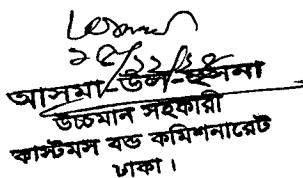 ২৫/১১/১৫
আসমা-উল-হুসনা
উচ্চমান সহকারী
কাস্টমস বন্ড কমিশনারেট
ঢাকা।